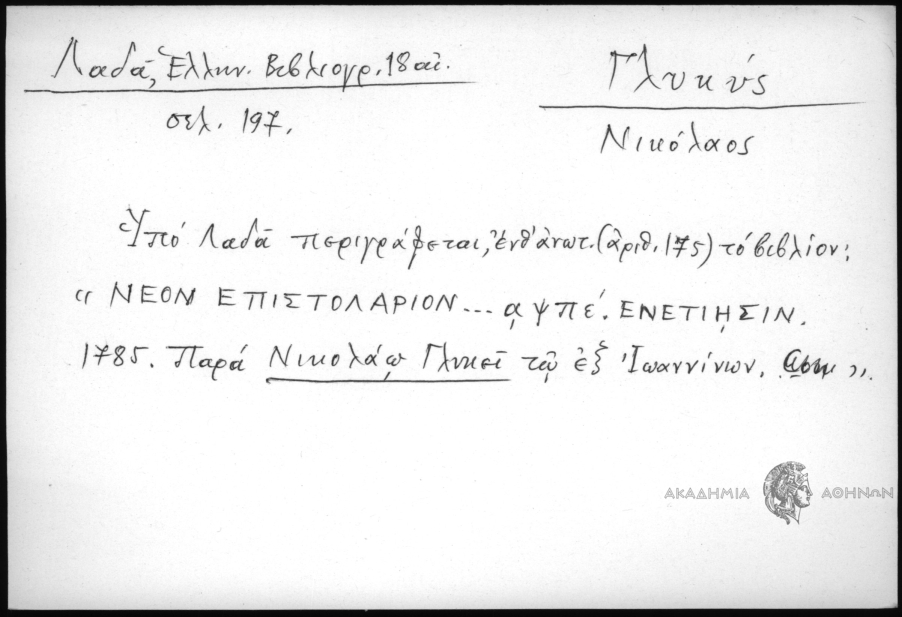 Λαδᾶ, Ἑλλην. Βιβλιογρ. 18 αἰ.
σελ. 197.
Γλυκύς
Νικόλαος
Ὑπό Λαδᾶ περιγράφεται, ἔνθ' ἀνωτ. (ἀριθ. 175) τό βιβλίον:
« ΝΕΟΝ ΕΠΙΣΤΟΛΑΡΙΟΝ... ͵αψπέ. ΕΝΕΤΙῌΣΙΝ.
1785. Παρά Νικολάῳ Γλυκεῖ τῷ ἐξ Ἰωαννίνων. »
ΑΚΑΔΗΜΙΑ ΑΘΗΝΩΝ